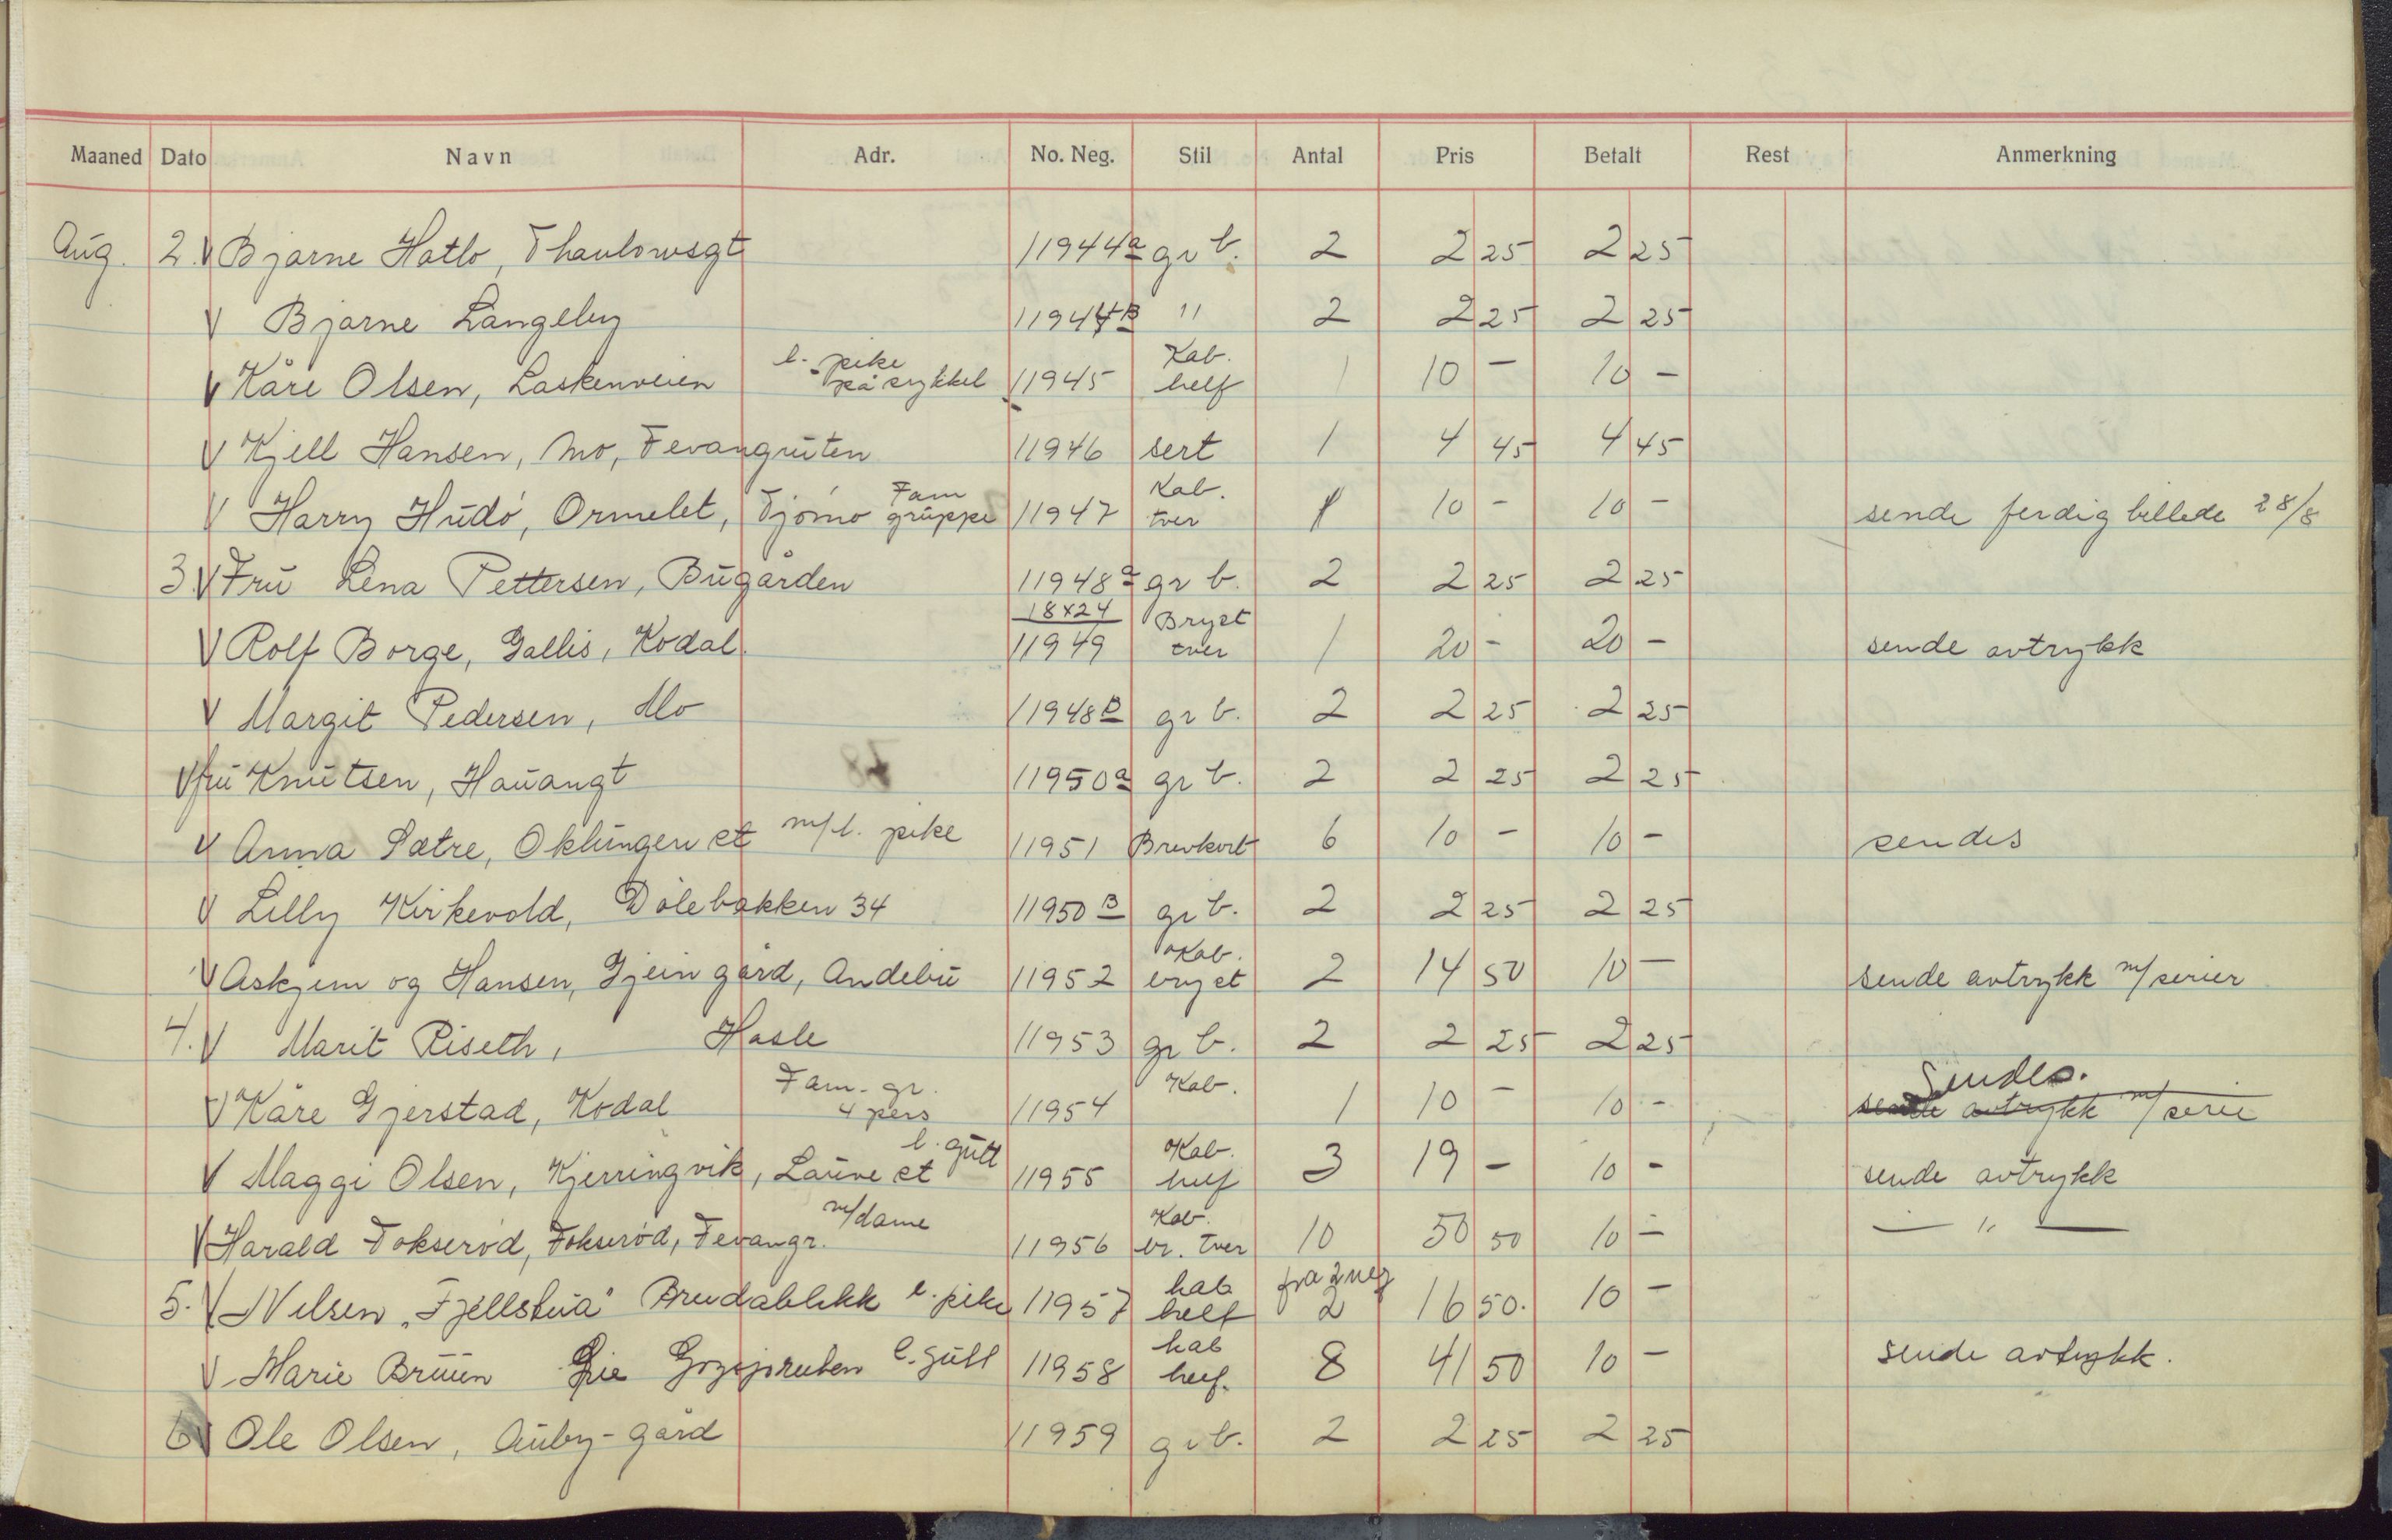 Maaned Dato Navn Adr. No. Neg. Stil Antal Pris Betalt Rest Anmerkning
Aug. 2. V Bjarne Hatlo, Thaulowsgt 11944a gr b. 2 2 25 2 25
V Bjarne Langeby 11944B " 2 2 25 2 25
V Kåre Olsen, Laskenveien l. pike på sykkel 11945 Kab. helf 1 10 - 10 -
V Kjell Hansen, Mo, Fevangruten 11946 sert 1 4 45 4 45
V Harry Hudø, Ormelet, Tjømo Fam gruppe 11947 Kab. tver 1 10 - 10 - sende ferdig billede 28/8
3. V Fru Lena Pettersen, Bugården 11948a gr b. 2 2 25 2 25
V Rolf Borge, Gallis, Kodal. 18x24 11949 Bryst tver 1 20 - 20 - sende avtrykk
V Margit Pedersen, Mo 11948B gr b. 2 2 25 2 25
V fru Knutsen, Hauangt 11950a gr b. 2 2 25 2 25
V Anna Sætre, Oklungen st m/l. pike 11951 Brevkort 6 10 - 10 - sendes
V Lilly Kirkevold, Dølebakken 34 11950B gr b. 2 2 25 2 25
V Askjem og Hansen, Gjein gård, Andebu 11952 Kab. bryst 2 14 50 10 - sende avtrykk m/serier
4. V Marit Riseth, Hasle 11953 gr b. 2 2 25 2 25
V Kåre Gjerstad, Kodal Fam-gr. 4 pers 11954 Kab. 1 10 - 10 - Sendes. sende avtrykk m/serie
V Maggi Olsen, Kjerringvik, Lauve st l. gutt 11955 Kab. helf 3 19 - 10 - sende avtrykk
V Harald Fokserød, Fokserød, Fevangr. m/dame 11956 Kab. br. tver 10 50 50 10 - — " —
5. V Nilsen „Fjellstua" Breidablikk l. pike 11957 kab helf fra 2 neg 2 16 50. 10 -
V Marie Bruun l. gutt 11958 kab helf. 8 41 50 10 - sende avtrykk.
6 V Ole Olsen, Auby-gård 11959 gr b. 2 2 25 2 25